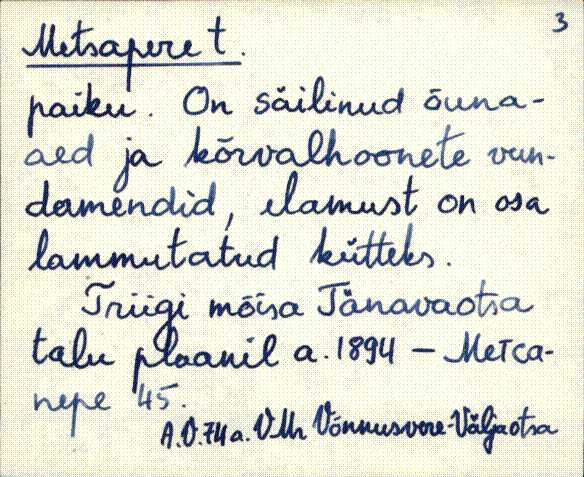 3
Metsapere t.
paiku. On säilinud õuna-
aed ja kõrvalhoonete vun-
damendid, elamust on osa
lammutatud kütteks.
Triigi mõisa Tänavaotsa
talu plaanil a. 1894 – Метса-
пере 45.
A.V. 74 a. VMr Võnnusvere-Väljaotsa